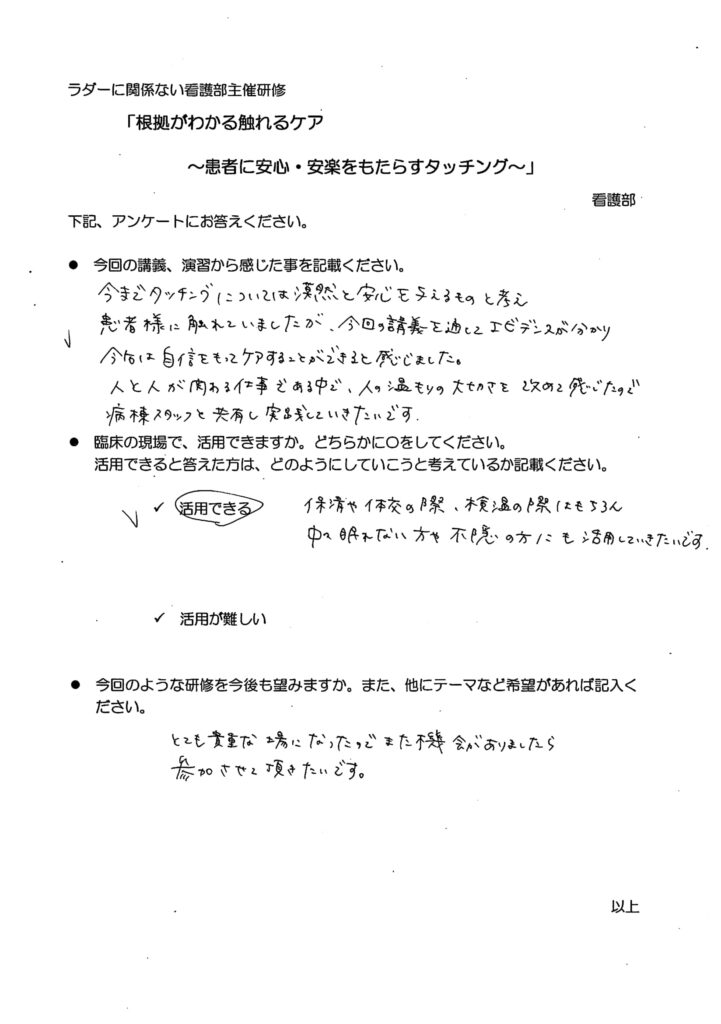 ラダーに関係ない看護部主催研修
「根拠がわかる触れるケア
～患者に安心・安楽をもたらすタッチング～」
看護部
下記、アンケートにお答えください。
● 今回の講義、演習から感じた事を記載ください。
今までタッチングについては漠然と安心を与えるものと考え
患者様に触れていましたが、今回の講義を通してエビデンスが分かり
今後は自信をもってケアすることができると感じました。
人と人が関わる仕事である中で、人の温もりの大切さを改めて感じたので
病棟スタッフと共有し実践していきたいです.
● 臨床の現場で、活用できますか。どちらかに〇をしてください。
活用できると答えた方は、どのようにしていこうと考えているか記載ください。
✓ 活用できる 保清や体交の際、検温の際はもちろん
中々眠れない方や不隠の方にも活用していきたいです.
✓ 活用が難しい
● 今回のような研修を今後も望みますか。また、他にテーマなど希望があれば記入く
ださい。
とても貴重な場になったのでまた機会がありましたら
参加させて頂きたいです。
以上